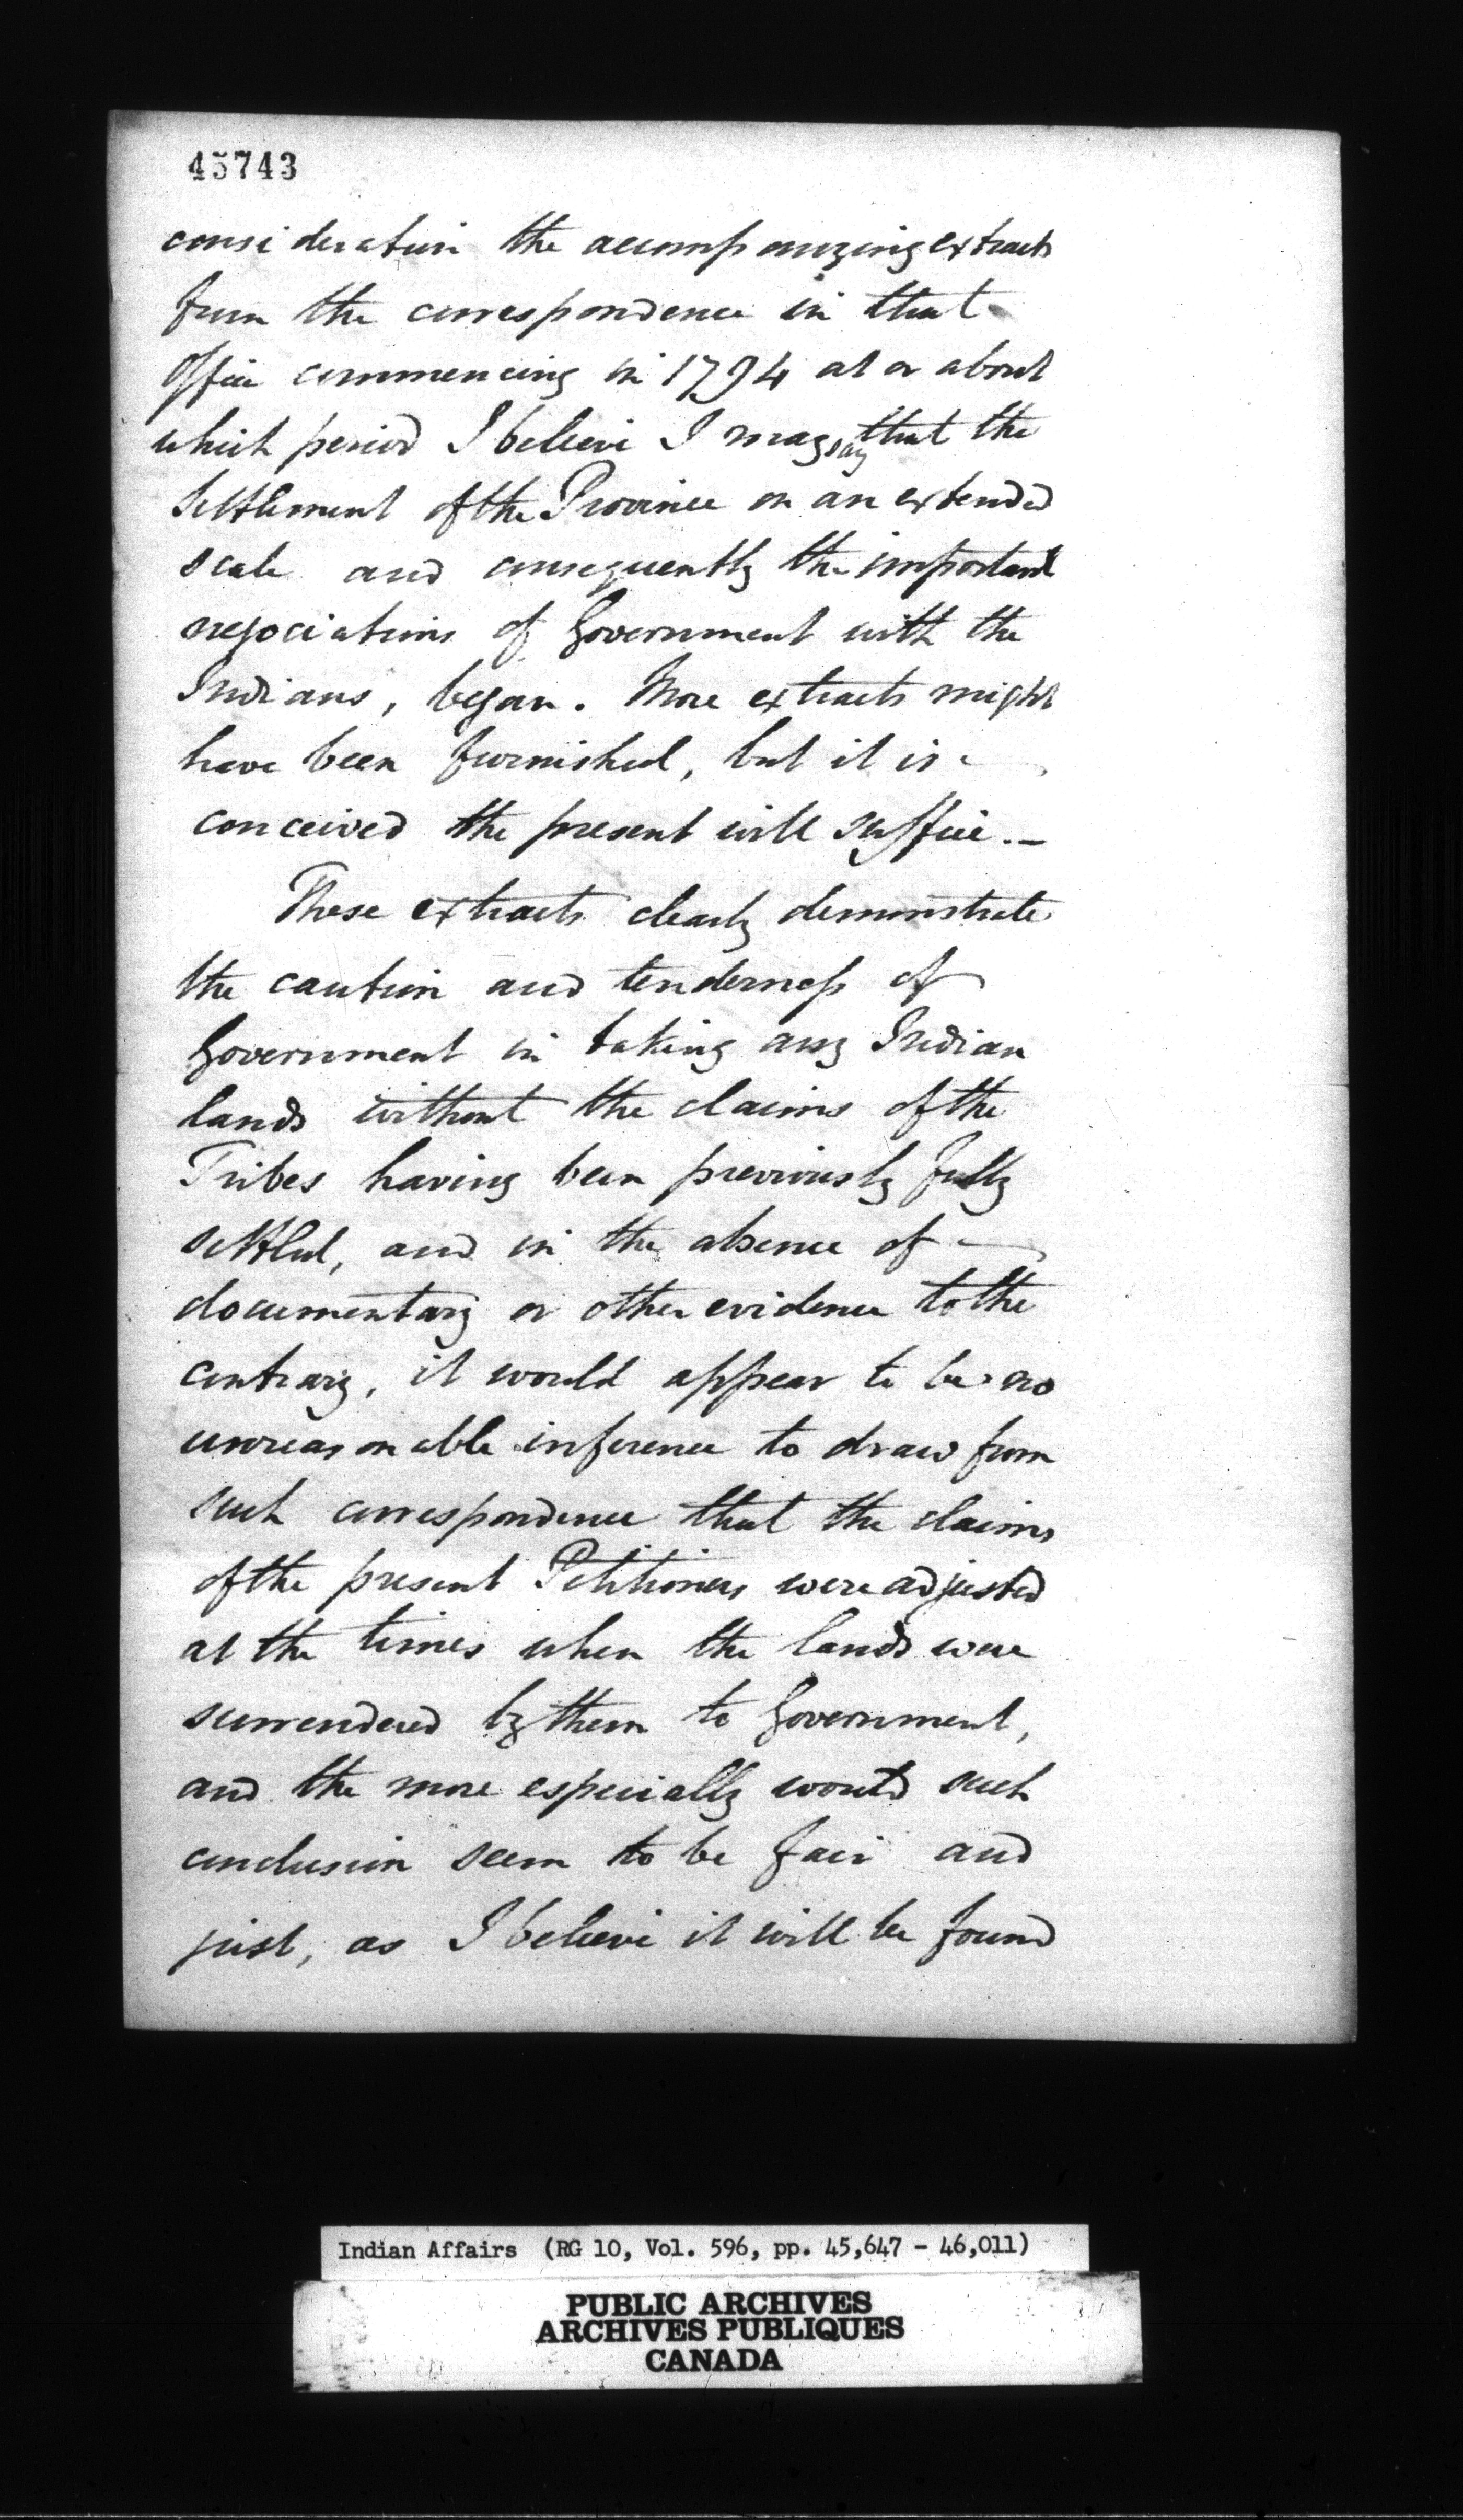 45743
consideration the accompanying extracts
from the correspondence in that
Office commencing in 1794 at or about
which period I believe I may say that the
Settlement of the Province on an extended
scale and consequently the important
negociations of Government with the
Indians, began. More extracts might
have been furnished, but it is
conceived the present will suffice.—
These extracts clearly demonstrate
the caution and tenderness of
Government in taking any Indian
lands without the claims of the
Tribes having been previously fully
settled, and in the absence of
documentary or other evidence to the
contrary, it would appear to be no
unreasonable inference to draw from
such correspondence that the claims
of the present Petitioners were adjusted
at the times when the lands were
surrendered by them to Government,
and the more especially would such
conclusion seem to be fair and
just, as I believe it will be found
Indian Affairs (RG 10, Vol. 596, pp. 45,647 - 46,011)
PUBLIC ARCHIVES
ARCHIVES PUBLIQUES
CANADA